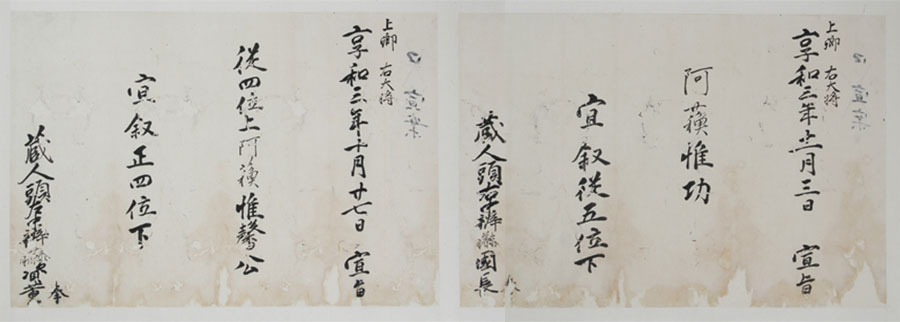 口 宣案
上卿 右大将
享和三年十二月三日 宣旨
阿蘓惟功
宜叙從五位下
蔵人頭右中辨藤原國長
口 宣案
上卿 右大将
享和三年十月廿七日 宣旨
從四位上阿蘓惟馨公
宜叙正四位下
蔵人頭左中辨藤原 奉